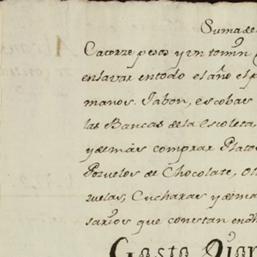 Suma de
Catorze pesos y un tomin
en lavar en todo el año el
manos. Jabon, escobas
las Bancas de la Escoleta
y demàs comprar Plato
Pozuelos de Chocolate, Oll
zuelas, Cucharas y dema
sarios que constan en
Gasto